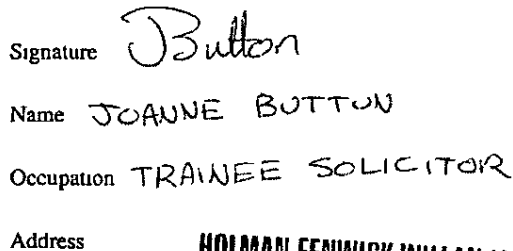 Signature JButton
Name JOANNE BUTTON
Occupation TRAINEE SOLICITOR
Address HOLMAN FENWICK WILLAN